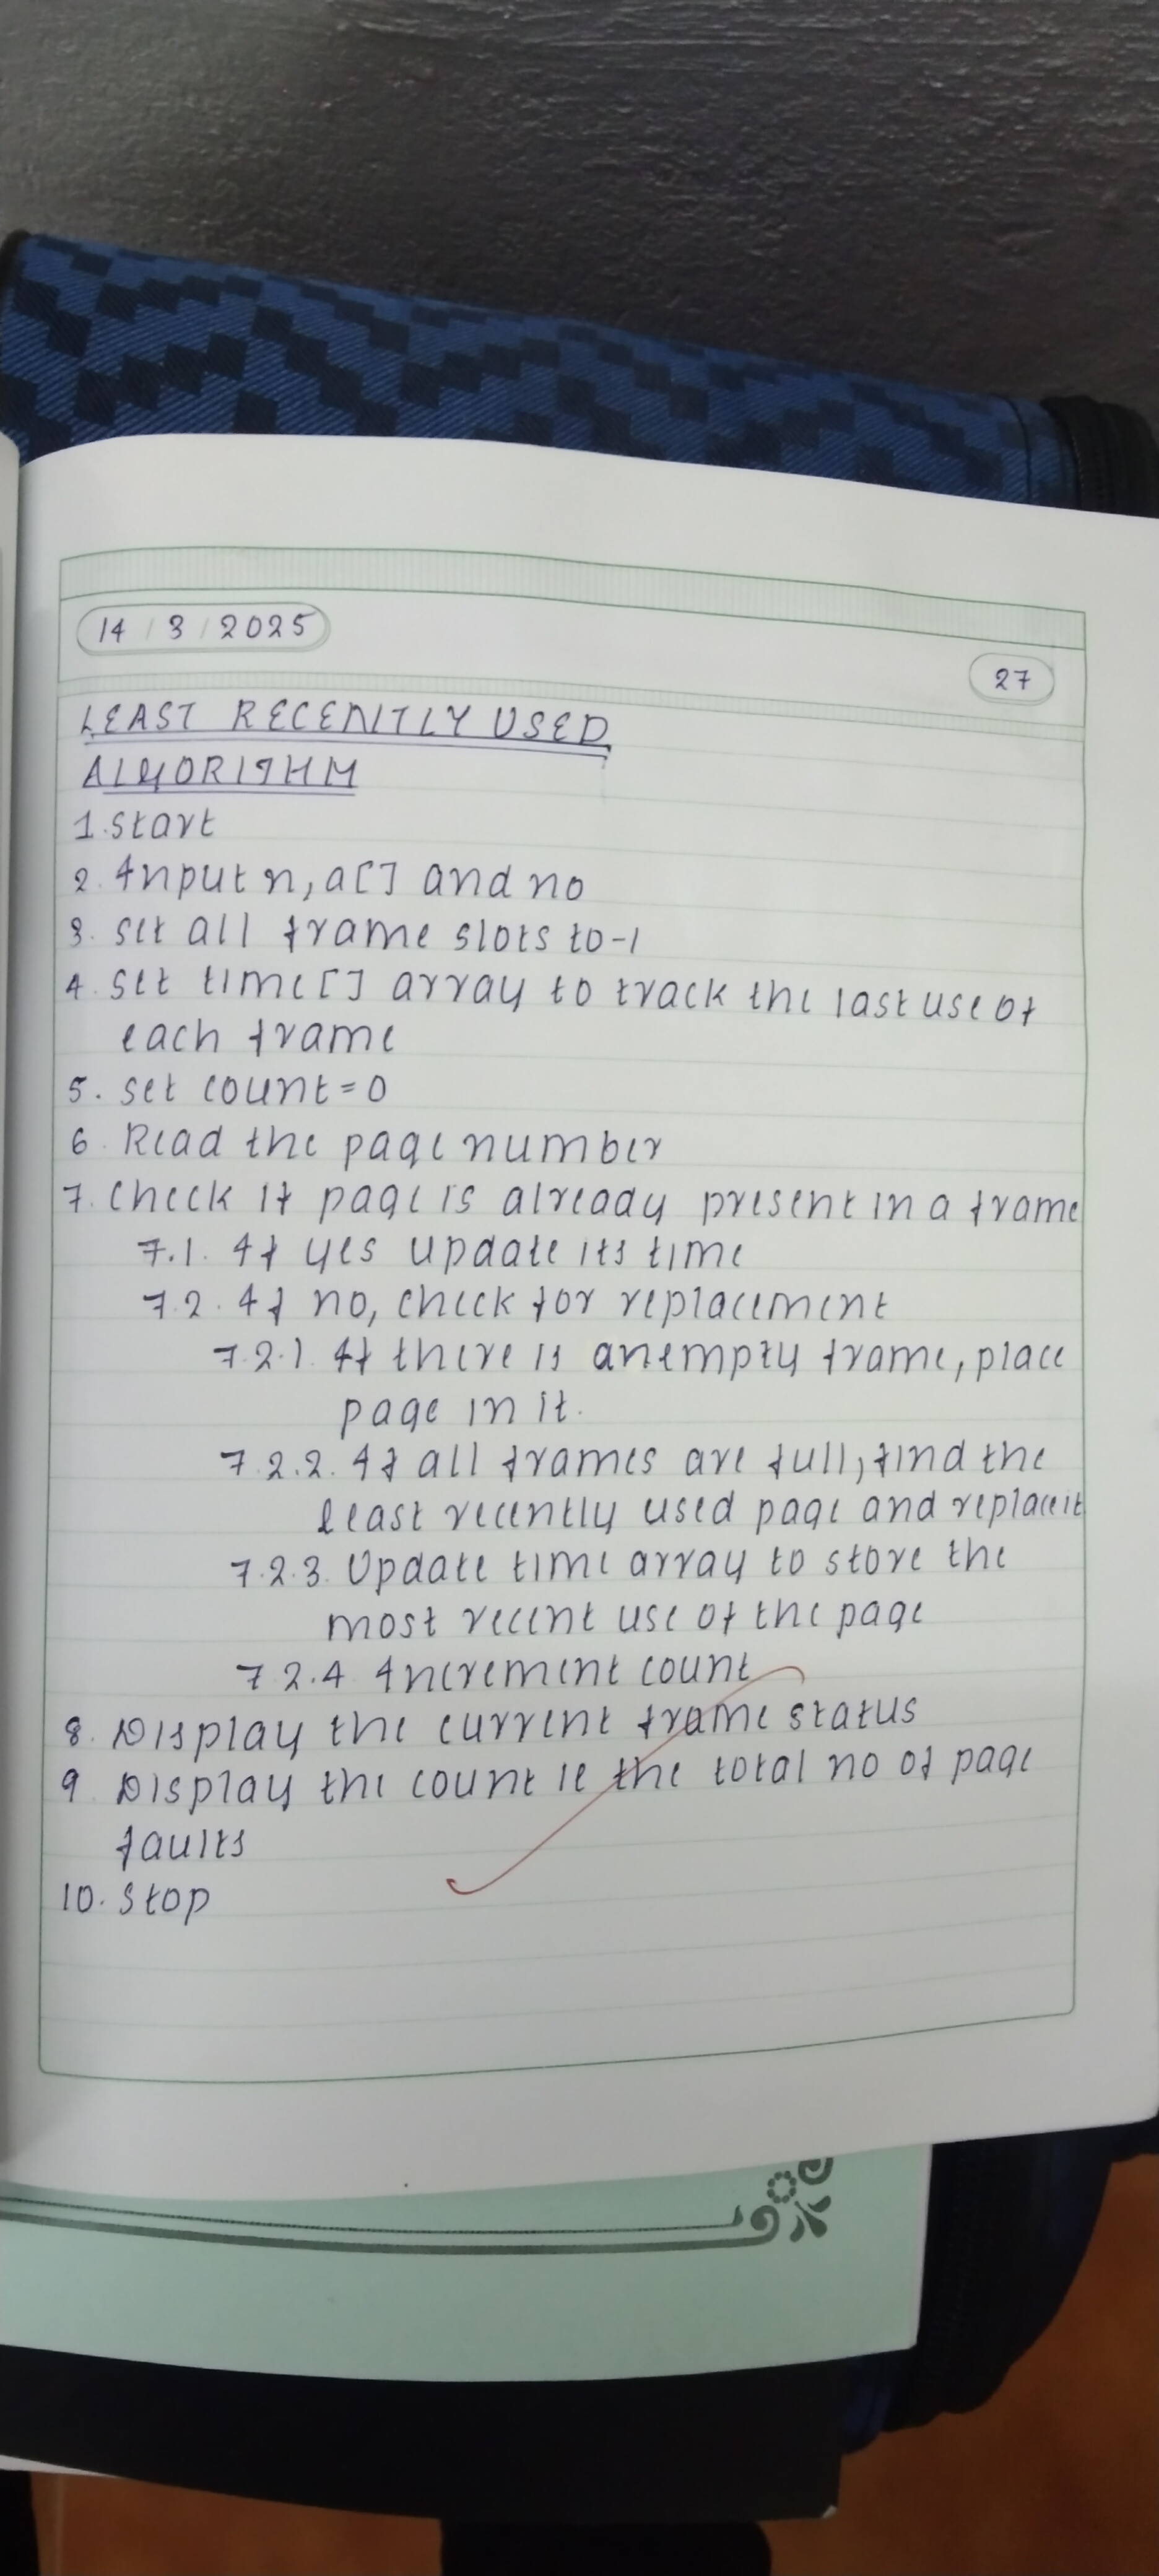 14/3/2025
27
LEAST RECENTLY USED
ALGORITHM
1. Start
2. Input n, a[] and no
3. set all frame slots to -1
4. Set time[] array to track the last use of
each frame
5. set count = 0
6. Read the page number
7. Check if page is already present in a frame
7.1. If yes update its time
7.2. If no, check for replacement
7.2.1. If there is an empty frame, place
page in it.
7.2.2. If all frames are full, find the
least recently used page and replace it
7.2.3. Update time array to store the
most recent use of the page
7.2.4 Increment count
8. Display the current frame status
9 Display the count ie the total no of page
faults
10. Stop